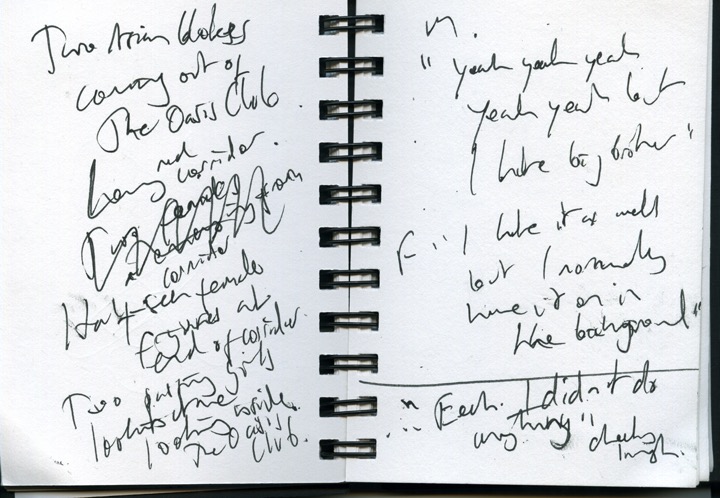 Two Asian blokes
coming out of
The Oasis Club.
Long red
corridor.
Two females
corridor
Half-seen female
figures at
end of corridor.
Two passing girls
look at me
looking inside
The Oasis
Club.
M.
"yeah yeah yeah
yeah yeah but
I hate big brother"
F: "I hate it as well
but I normally
have it on in
the background"
M: "Eeeh. I didn't do
anything" cheeky
laugh.